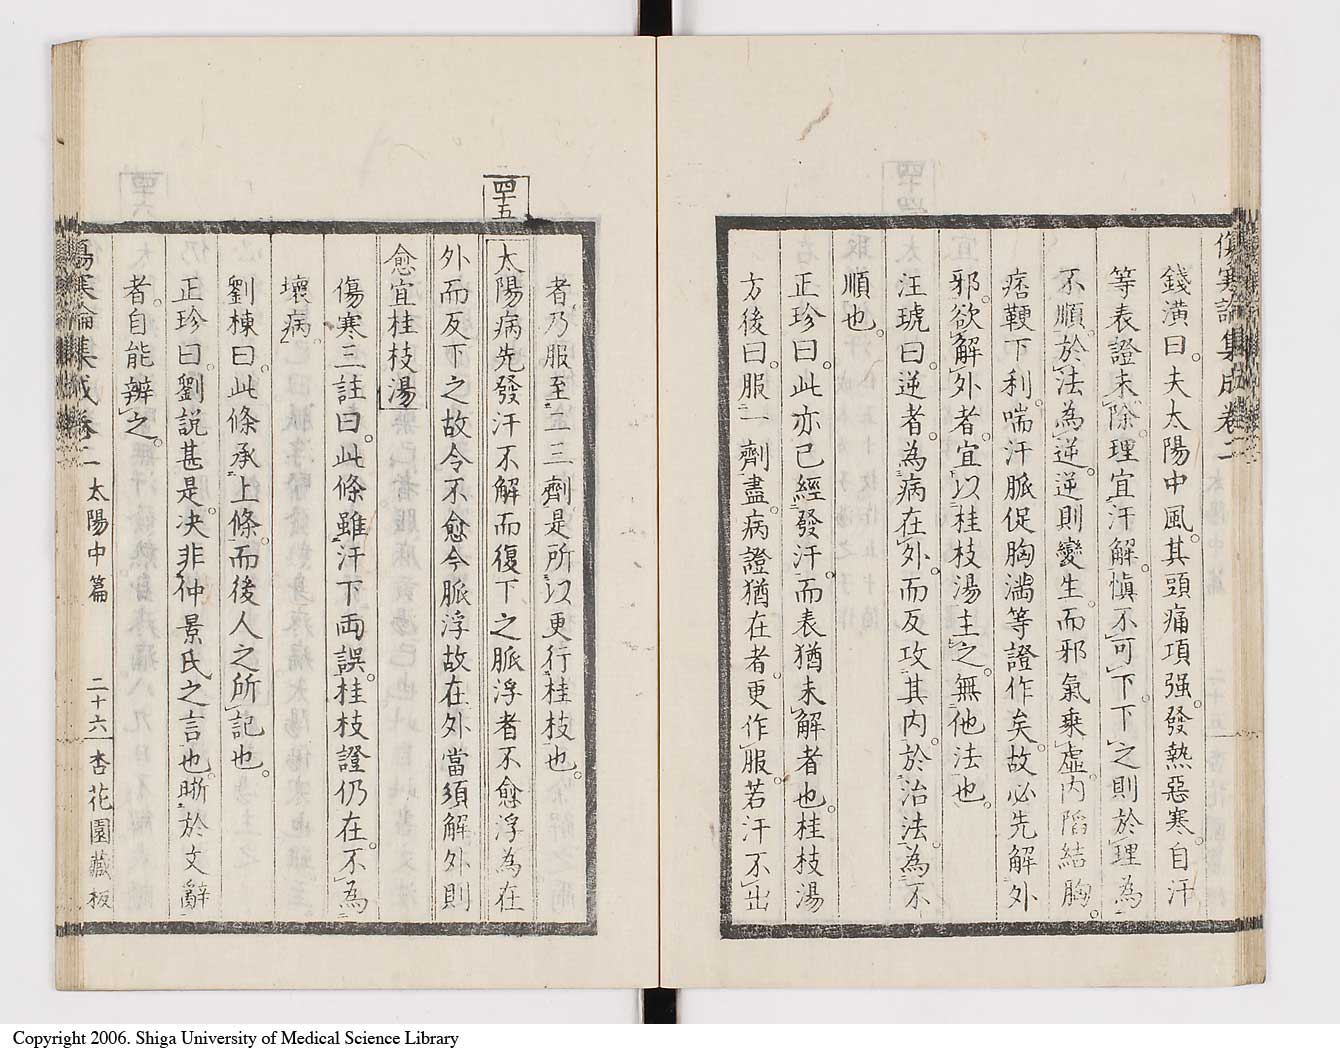 傷寒論集成卷二
錢潢曰。夫太陽中風。其頭痛項强。發熱惡寒。自汗
等表證未除。理宜汗解。愼不可下。下之則於理為
不順。於法為逆。逆則變生。而邪氣乘虛。内陷結胸。
痞鞕下利。喘汗脈促胸滿等證作矣。故必先解外
邪。欲解外者。宜以桂枝湯主之。無他法也。
汪琥曰。逆者。為病在外。而反攻其内。於治法為不
順也。
正珍曰。此亦已經發汗。而表猶未解者也。桂枝湯
方後曰。服一劑盡。病證猶在者。更作服。若汗不出
者。乃服至三劑。是所以更行桂枝也。
四十五
太陽病先發汗不解而復下之脈浮者不愈浮為在
外而反下之故令不愈今脈浮故在外當須解外則
愈宜桂枝湯
傷寒三註曰。此條雖汗下両誤。桂枝證仍在。不為
壞病。
劉棟曰。此條承上條。而後人之所記也。
正珍曰。劉説甚是。决非仲景氏之言也。晣於文辭
者。自能辨之。
傷寒論集成卷二 太陽中篇 二十六 杏花園藏板
Copyright 2006. Shiga University of Medical Science Library